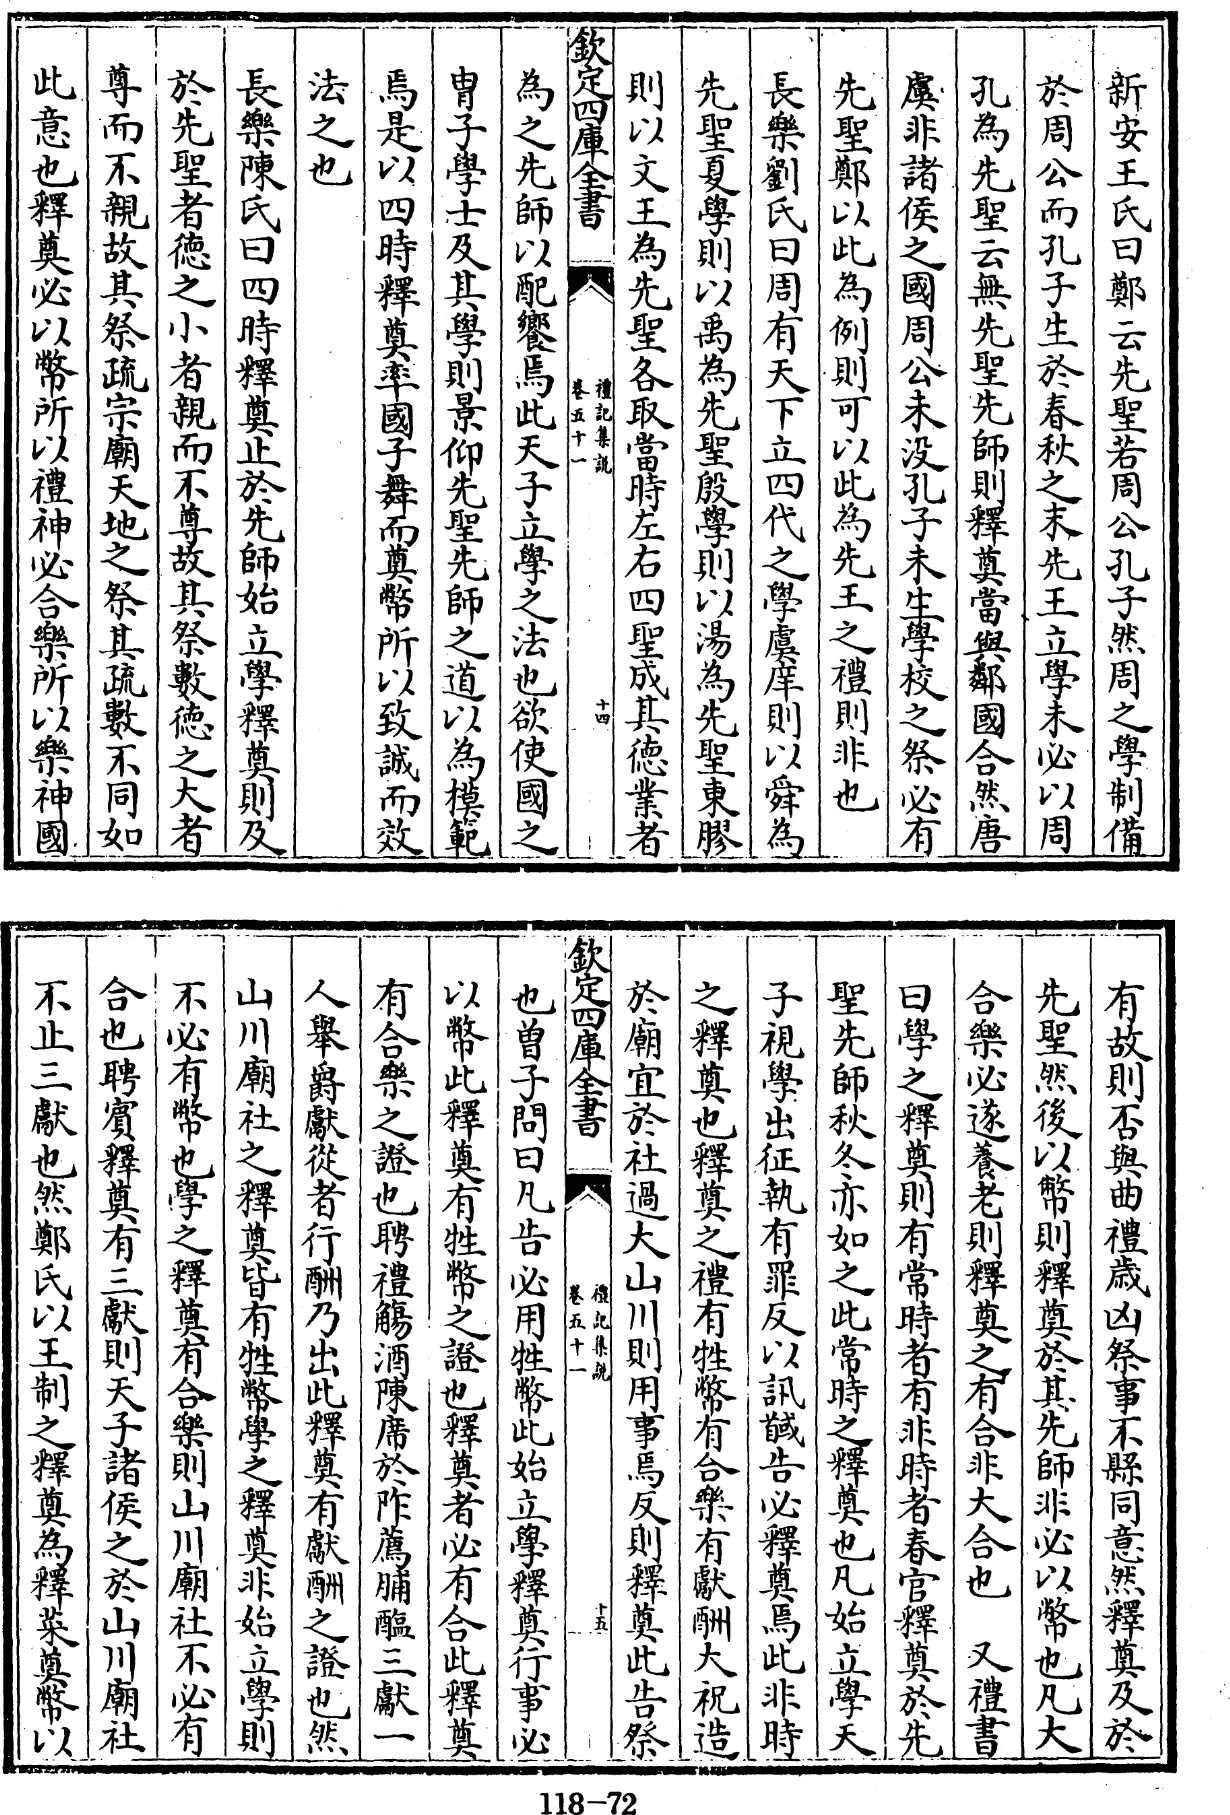 新安王氏曰鄭云先聖若周公孔子然周之學制備
於周公而孔子生於春秋之末先王立學未必以周
孔為先聖云無先聖先師則釋奠當與鄰國合然唐
虞非諸侯之國周公未没孔子未生學校之祭必有
先聖鄭以此為例則可以此為先王之禮則非也
長樂劉氏曰周有天下立四代之學虞庠則以舜為
先聖夏學則以禹為先聖殷學則以湯為先聖東膠
則以文王為先聖各取當時左右四聖成其德業者
欽定四庫全書
禮記集說
卷五十一
十四
為之先師以配饗焉此天子立學之法也欲使國之
冑子學士及其學則景仰先聖先師之道以為模範
焉是以四時釋奠率國子舞而奠幣所以致誠而效
法之也
長樂陳氏曰四時釋奠止於先師始立學釋奠則及
於先聖者德之小者親而不尊故其祭數德之大者
尊而不親故其祭疏宗廟天地之祭其疏數不同如
此意也釋奠必以幣所以禮神必合樂所以樂神國
有故則否與曲禮歲凶祭事不縣同意然釋奠及於
先聖然後以幣則釋奠於其先師非必以幣也凡大
合樂必遂養老則釋奠之有合非大合也 又禮書
曰學之釋奠則有常時者有非時者春官釋奠於先
聖先師秋冬亦如之此常時之釋奠也凡始立學天
子視學出征執有罪反以訊馘告必釋奠焉此非時
之釋奠也釋奠之禮有牲幣有合樂有獻酬大祝造
於廟宜於社過大山川則用事焉反則釋奠此告祭
欽定四庫全書
禮記集說
卷五十一
十五
也曾子問曰凡告必用牲幣此始立學釋奠行事必
以幣此釋奠有牲幣之證也釋奠者必有合此釋奠
有合樂之證也聘禮觴酒陳席於阼薦脯醢三獻一
人舉爵獻從者行酬乃出此釋奠有獻酬之證也然
山川廟社之釋奠皆有牲幣學之釋奠非始立學則
不必有幣也學之釋奠有合樂則山川廟社不必有
合也聘賓釋奠有三獻則天子諸侯之於山川廟社
不止三獻也然鄭氏以王制之釋奠為釋菜奠幣以
118-72